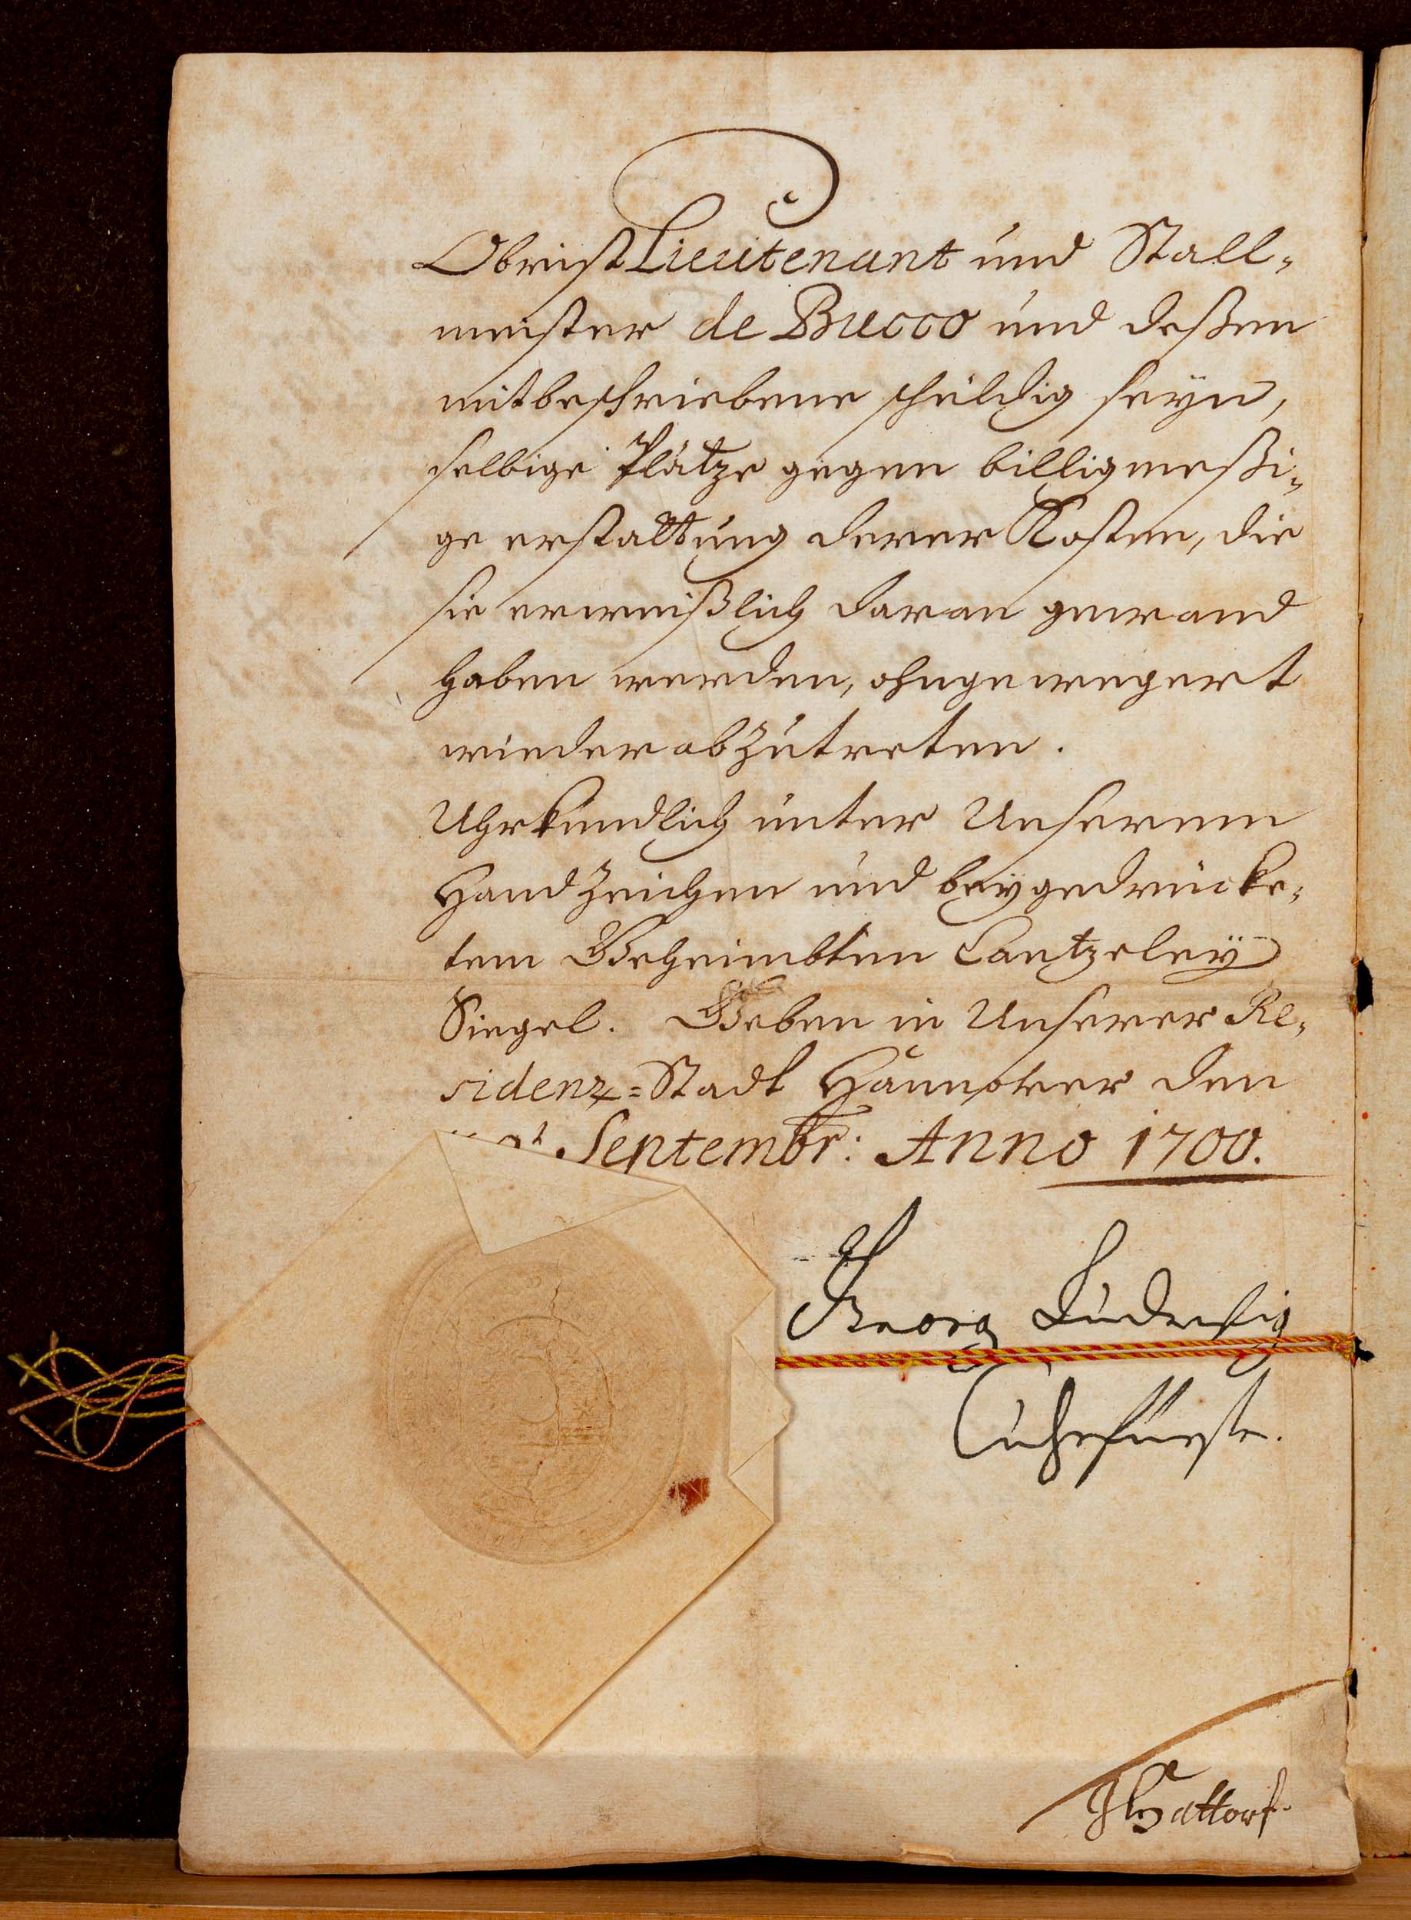 Obrist Lieutenant und Stall-
meister de Bucco und deßen
mitbeschriebene schuldig seyn,
selbige Plätze gegen billigmeßi-
ge erstattung derer Kosten, die
sie erweißlich daran gewand
haben werden, ohngewegert
wieder abzutreten.
Uhrkundlich unter Unserem
Handzeichen und beygedrücke-
tem Geheimbten Cantzeley
Siegel. Geben in Unserer Re-
sidenz-Stadt Hannover den
Septembr: Anno 1700.
Georg Ludewig
Cuhrfürst.
Hattorf